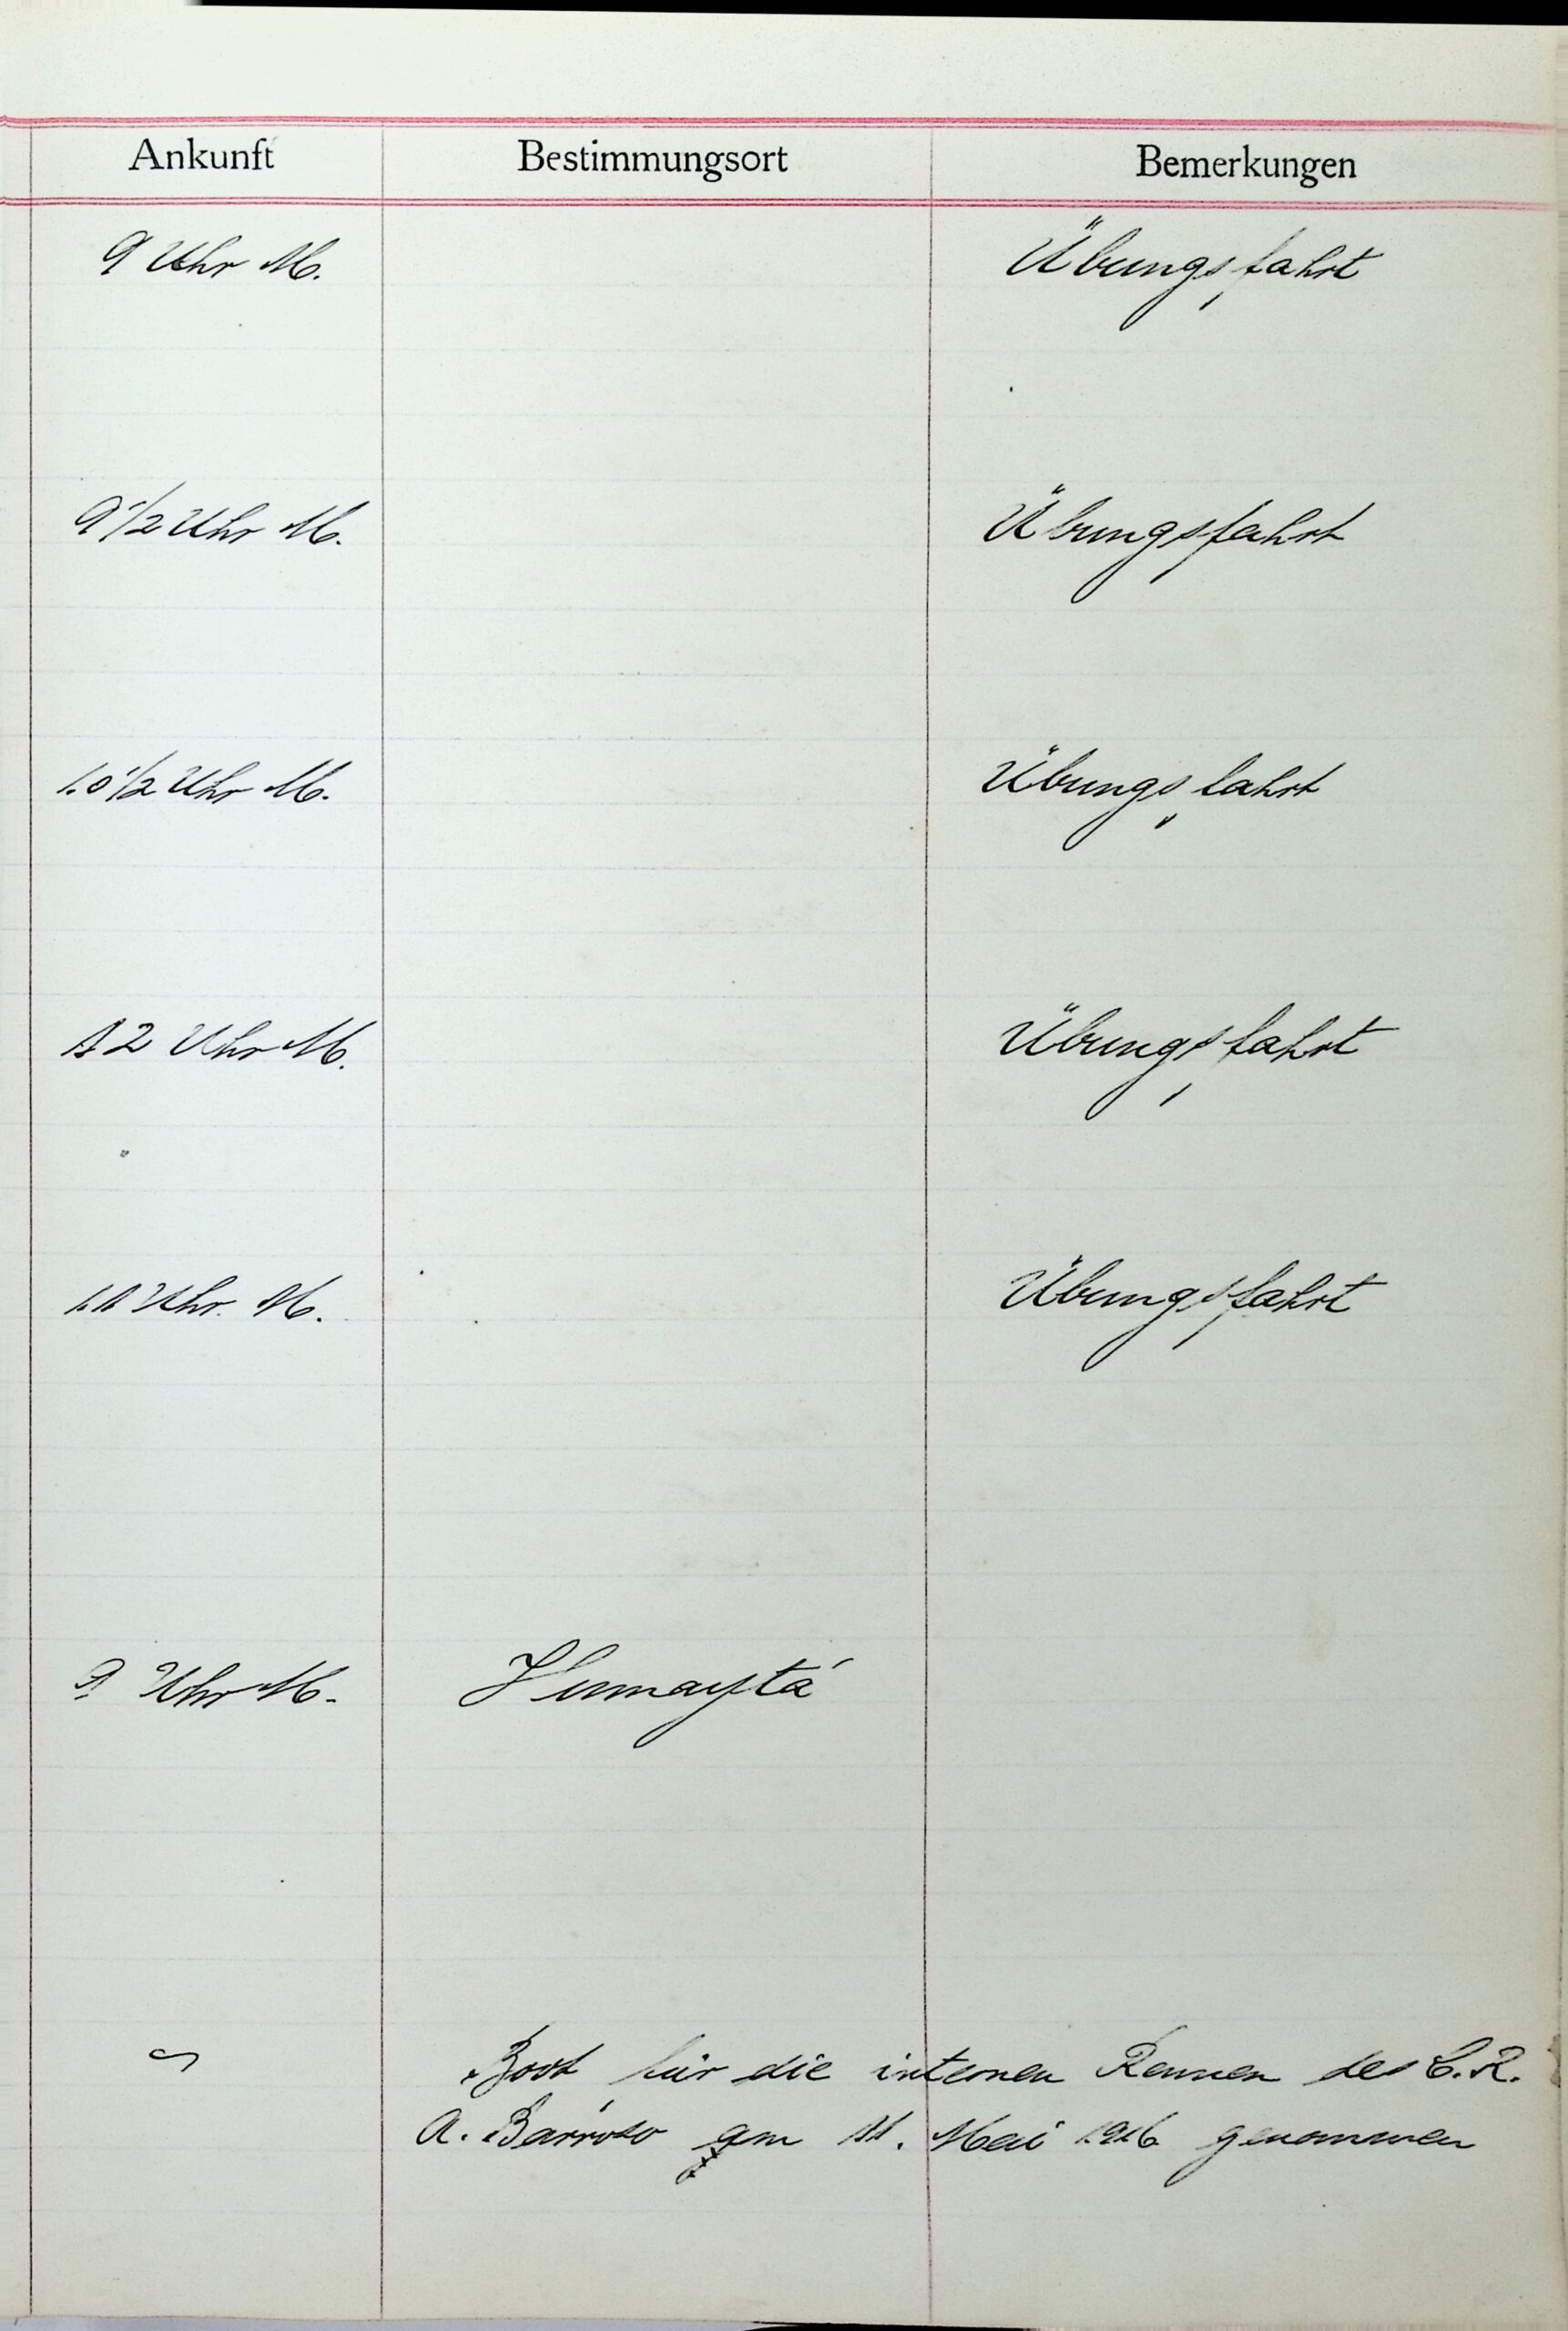 Ankunft Bestimmungsort Bemerkungen
9 Uhr M. Übungsfahrt
9 1/2 Uhr M. Übungsfahrt
10 1/2 Uhr M. Übungsfahrt
12 Uhr M. Übungsfahrt
11 Uhr. M. Übungsfahrt
9 Uhr M. Humaytá
Boot für die internen Rennen des C.R.
A. Barroso am 11. Mai 1916 genommen